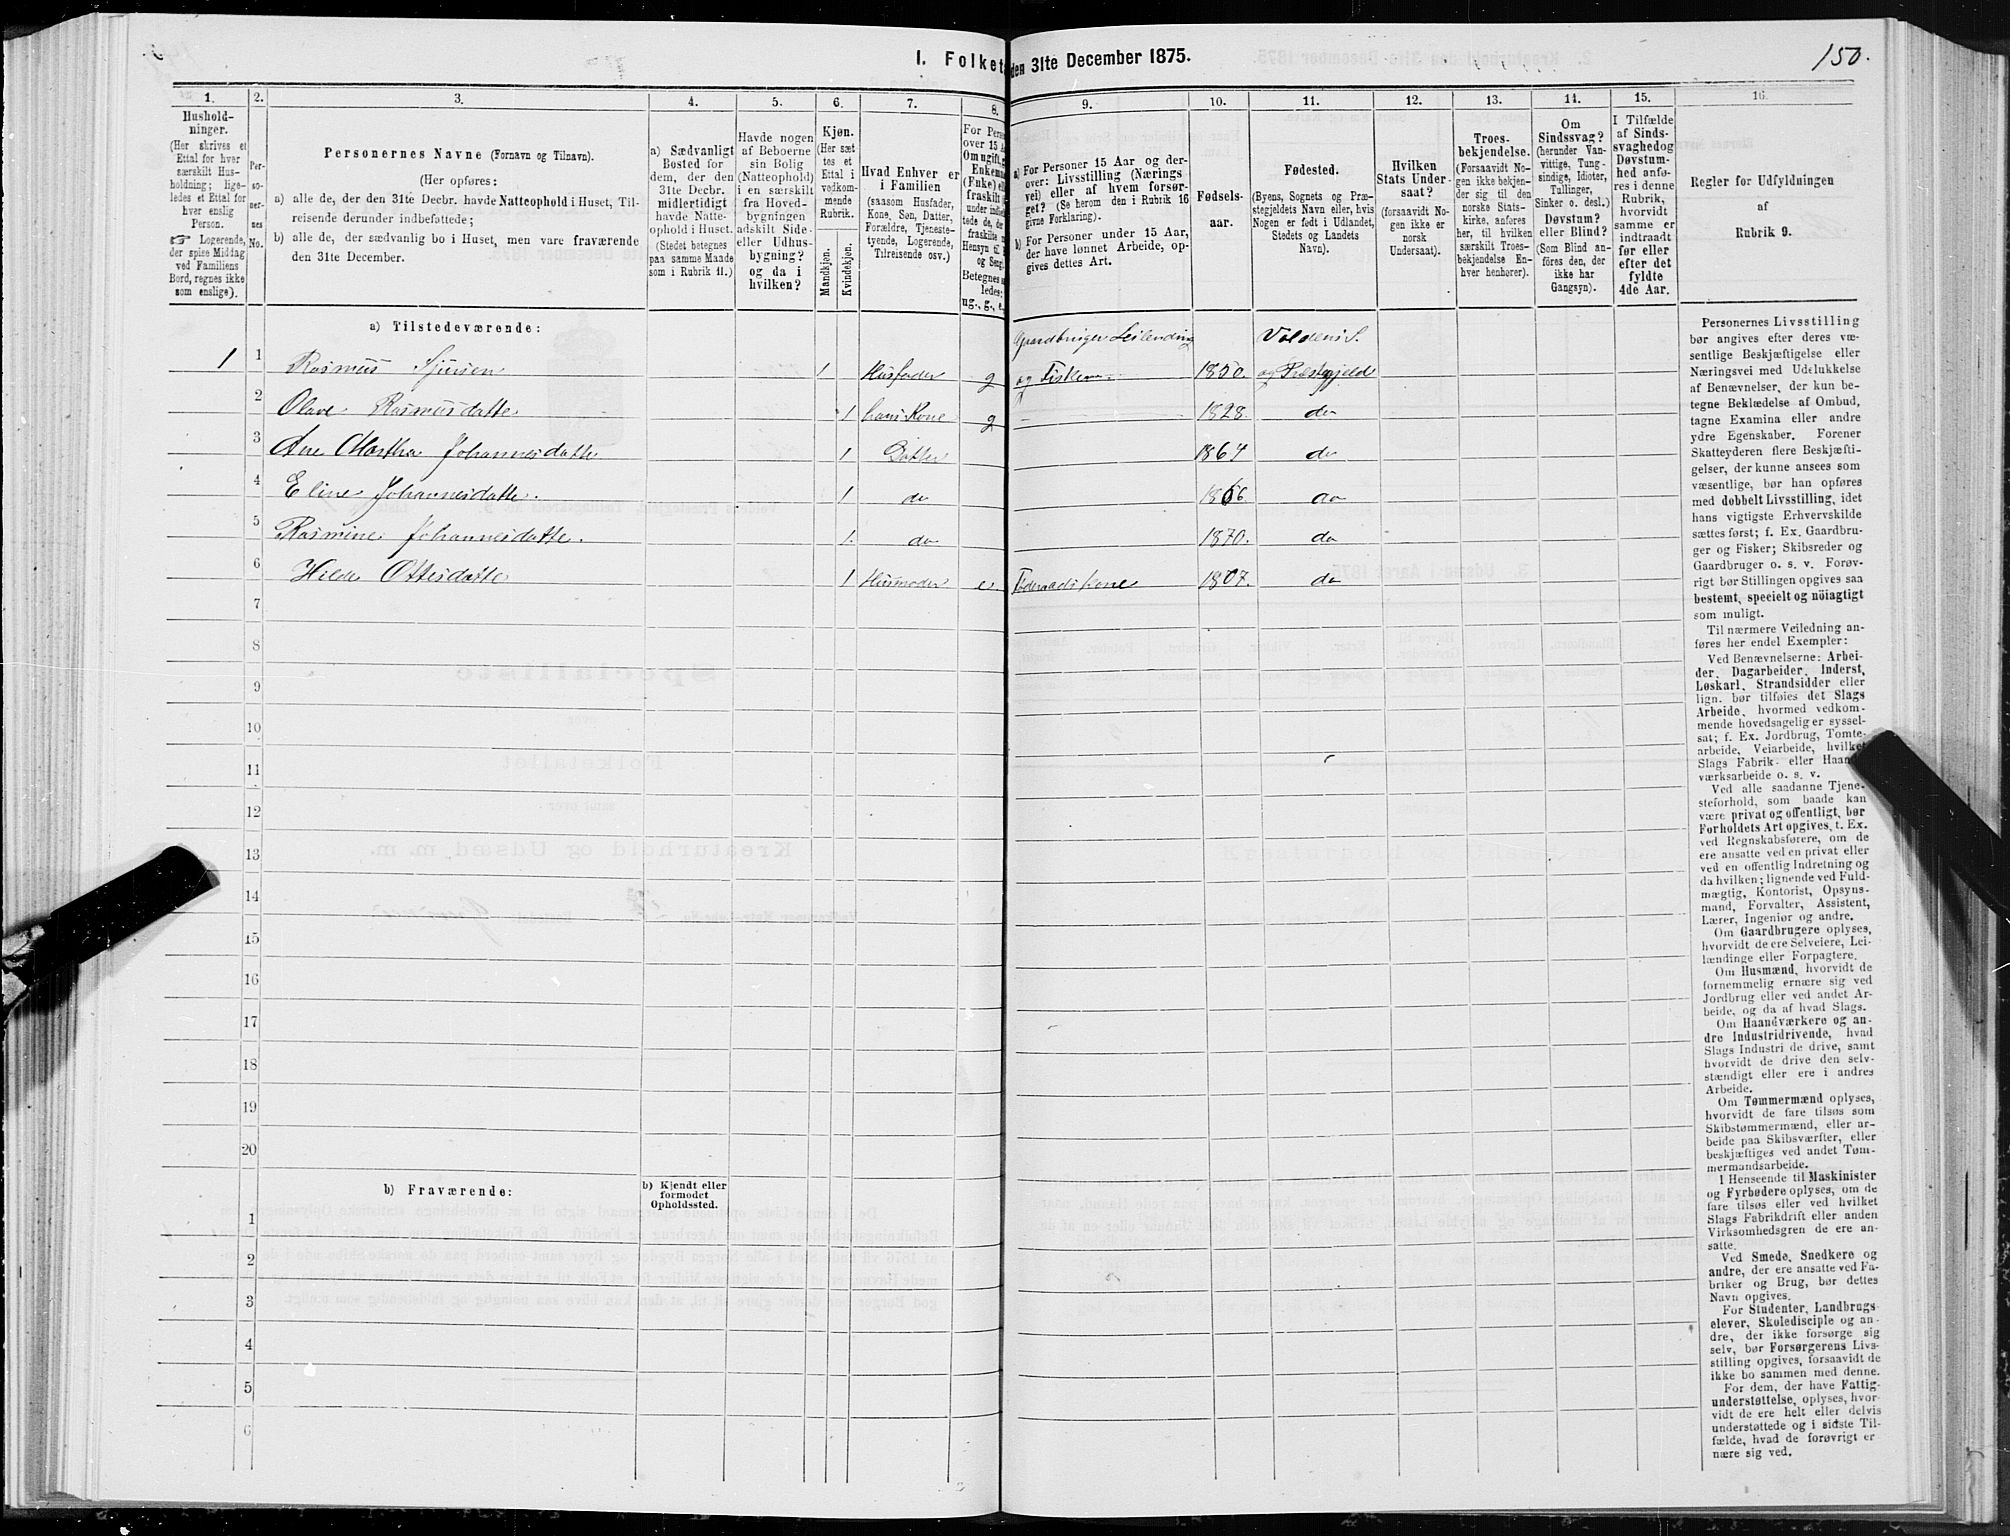 150.
I. Folket
den 31te December 1875.
1. 2. 3. 4. 5. 6. 7. 8. 9. 10. 11. 12. 13. 14. 15. 16.
Hushold-
ninger.
(Her skrives et
Ettal for hver
særskilt Hus-
holdning; lige-
ledes et Ettal for
hver enslig
Person.
☞ Logerende,
der spise Middag
ved Familiens
Bord, regnes ikke
som enslige).
Per-
so-
ner-
nes
No.
Personernes Navne (Fornavn og Tilnavn).
(Her opføres:
a) alle de, der den 31te Decbr. havde Natteophold i Huset, Til-
reisende derunder indbefattede;
b) alle de, der sædvanlig bo i Huset, men vare fraværende
den 31te December.
a) Sædvanligt
Bosted for
dem, der den
31te Decbr.
midlertidigt
havde Natte-
ophold i Huset.
(Stedet betegnes
paa samme Maade
som i Rubrik 11.)
Havde nogen
af Beboerne
sin Bolig
(Natteophold)
i en særskilt
fra Hoved-
bygningen
adskilt Side-
eller Udhus-
bygning?
og da i
hvilken?
Kjøn.
(Her sæt
tes et
Ettal i
vedkom-
mende
Rubrik.
Mandkjøn.
Kvindekjøn.
Hvad Enhver er
i Familien
(saasom Husfader,
Kone, Søn, Datter,
Forældre, Tjeneste-
tyende, Logerende,
Tilreisende osv.)
For Perso
over 15 A
Om ugift, g
Enkema
(Enke) el
fraskilt
under indb
tede de, d
fraskilte
Hensyn til
og Seng
Betegnes s
ledes:
ug., g., e.,
a) For Personer 15 Aar og der-
over: Livsstilling (Nærings
vei) eller af hvem forsør-
get? (Se herom den i Rubrik 16
givne Forklaring).
b) For Personer under 15 Aar,
der have lønnet Arbeide, op-
gives dettes Art.
Fødsels-
aar.
Fødested.
(Byens, Sognets og Præ-
stegjeldets Navn eller, hvis
Nogen er født i Udlandet,
Stedets og Landets
Navn).
Hvilken
Stats Under-
saat?
(forsaavidt No-
gen ikke er
norsk
Undersaat).
Troes-
bekjendelse.
(Forsaavidt No-
gen ikke bekjen-
der sig til den
norske Stats-
kirke, anføres
her, til hvilken
særskilt Troes-
bekjendelse En-
hver henhører).
Om
Sindssvag?
(herunder Van-
vittige, Tung-
sindige, Idioter,
Tullinger,
Sinker o. desl.)
Døvstum?
eller Blind?
(Som Blind an-
føres den, der
ikke har
Gangsyn).
I Tilfælde
af Sinds-
svaghedog
Døvstum-
hed anfø-
res i denne
Rubrik,
hvorvidt
samme er
indtraadt
før eller
efter det
fyldte
4de Aar.
Regler for Udfyldningen
af
Rubrik 9.
a) Tilstedeværende:
Gaardbruger Leilending Voldens S.
1 1 Rasmus Sjursen 1 Husfader g og Fisker 1850. og Præstegjeld
2 Olave Rasmusdatte 1 hans Kone g - 1828. do
3 Ane Martha Johannesdatte 1 Datter 1864 do
4 Eline Johannesdatte. 1 do 1866 do
5 Rasmine Johannesdatte. 1. do 1870. do
6 Hilde Ottesdatte 1 Husmoder e. Føderaadskone 1807. do
7
8
9
10
11
12
13
14
15
16
17
18
19
20
b) Fraværende:
b) Kjendt eller
formodet
Opholdssted.
1
2
3
4
5
6
Personernes Livsstilling
bør angives efter deres væ-
sentlige Beskjæftigelse eller
Næringsvei med Udelukkelse
af Benævnelser, der kun be-
tegne Beklædelse af Ombud,
tagne Examina eller andre
ydre Egenskaber. Forener
Skatteyderen flere Beskjæfti-
gelser, der kunne ansees som
væsentlige, bør han opføres
med dobbelt Livsstilling, idet
hans vigtigste Erhvervskilde
sættes først; f. Ex. Gaardbru-
ger og Fisker; Skibsreder og
Gaardbruger o. s. v. Forøv-
rigt bør Stillingen opgives saa
bestemt, specielt og nöiagtigt
som muligt.
Til nærmere Veiledning an-
føres her endel Exempler:
Ved Benævnelserne: Arbei-
der, Dagarbeider, Inderst,
Løskarl, Strandsidder eller
lign. bør tilføies det Slags
Arbeide, hvormed vedkom-
mende hovedsagelig er syssel-
sat; f. Ex. Jordbrug, Tomte-
arbeide, Veiarbeide, hvilket
Slags Fabrik- eller Haand-
værksarbeide o. s. v.
Ved alle saadanne Tjene-
steforhold, som baade kan
være privat og offentligt, bør
Forholdets Art opgives, t. Ex.
ved Regnskabsførere, om de
ere ansatte ved en privat eller
ved en offentlig Indretning og
da hvilken; lignende ved Fuld-
mægtig, Kontorist, Opsyns-
mand, Forvalter, Assistent,
Lærer, Ingeniør og andre.
Om Gaardbrugere oplyses,
hvorvidt de ere Selveiere, Lei-
lændinge eller Forpagtere.
Om Husmænd, hvorvidt de
fornemmelig ernære sig ved
Jordbrug eller ved andet Ar-
beide, og da af hvad Slags.
Om Haandværkere og an-
dre Industridrivende, hvad
Slags Industri de drive, samt
hvorvidt de drive den selv-
stændigt eller ere i andres
Arbeide.
Om Tømmermænd oplyses,
hvorvidt de fare tilsøs som
Skibstømmermænd, eller ar-
beide paa Skibsværfter, eller
beskjæftiges ved andet Tøm-
mermandsarbeide.
I Henseende til Maskinister
og Fyrbødere oplyses, om de
fare tilsøs eller ved hvilket
Slags Fabrikdrift eller anden
Virksomhedsgren de ere an-
satte.
Ved Smede, Snedkere og
andre, der ere ansatte ved Fa-
briker og Brug, bør dettes
Navn opgives.
For Studenter, Landbrugs
elever, Skoledisciple og an-
dre, der ikke forsørge sig
selv, bør Forsørgerens Livs-
stilling opgives, forsaavidt de
ikke bo sammen med denne.
For dem, der have Fattig-
understøttelse, oplyses, hvor-
vidt de ere helt eller delvis
understøttede og i sidste Til-
fælde, hvad de forøvrigt er
nære sig ved.